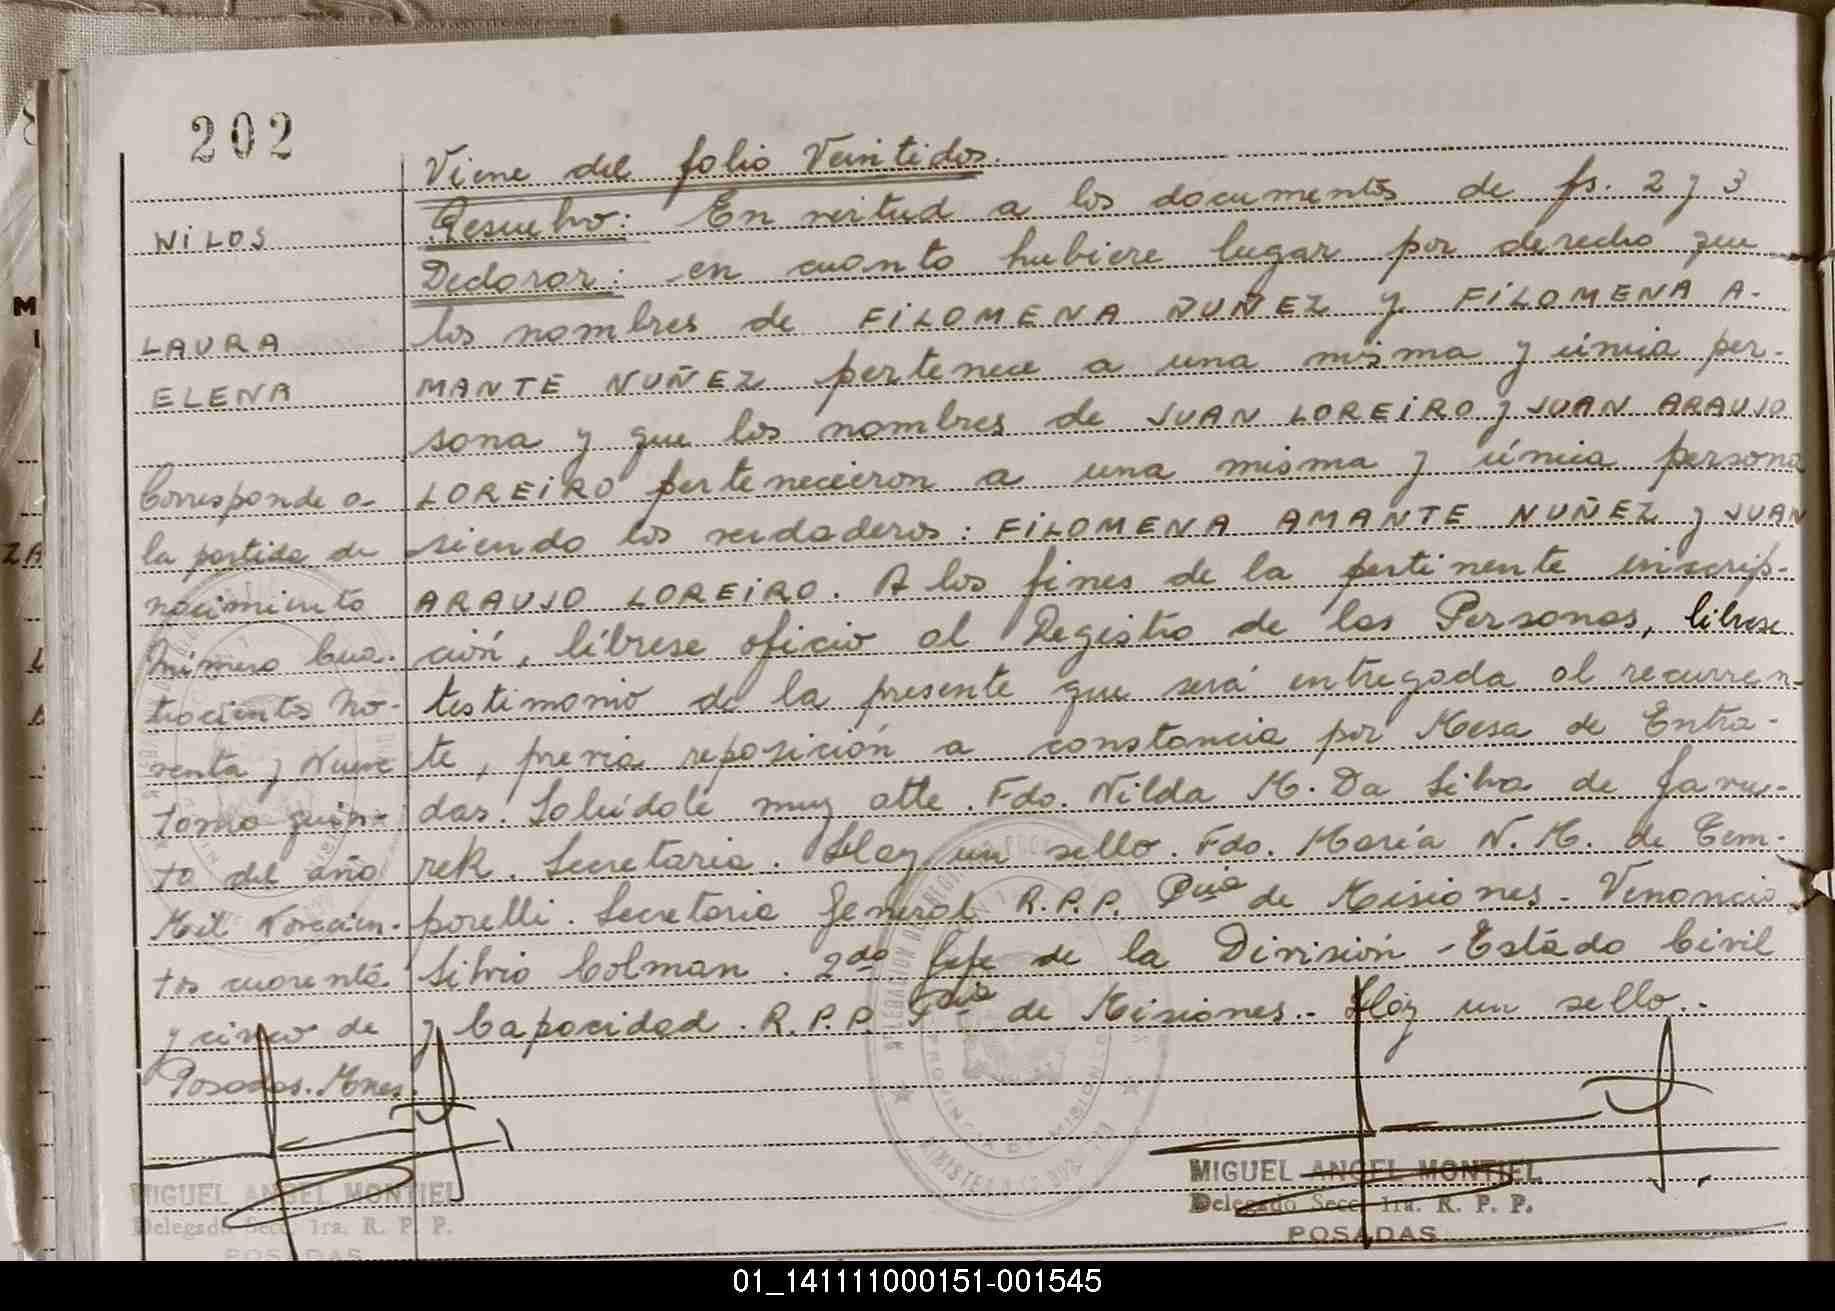 202
Viene del folio Veintidos.
Resuelvo: En virtud a los documentos de fs. 2 y 3
Declarar: en cuanto hubiere lugar por derecho que
los nombres de FILOMENA NUÑEZ y FILOMENA A-
MANTE NUÑEZ pertenece a una misma y única per-
sona y que los nombres de JUAN LOREIRO y JUAN ARAUJO
LOREIRO pertenecieron a una misma y única persona
siendo los verdaderos: FILOMENA AMANTE NUÑEZ y JUAN
ARAUJO LOREIRO. A los fines de la pertinente inscrip-
ción, líbrese oficio al Registro de las Personas, líbrese
testimonio de la presente que será entregada al recurren-
te, previa reposición a constancia por Mesa de Entra-
das. Salúdole muy atte. Fdo. Nilda M. Da Silva de Gavu-
rek. Secretaria. Hay un sello. Fdo. María N. M. de Tem-
porelli. Secretaria General R.P.P. Pcia de Misiones. Venancio
Silvio Colman. 2do Jefe de la División - Estado Civil
y Capacidad. R.P.P. Pcia de Misiones.- Hay un sello.-
NILOS
LAURA
ELENA
Corresponde a
la partida de
nacimiento
número cua-
trocientos no-
venta y Nueve
tomo quin-
to del año
Mil Novecien-
tos cuarenta
y cinco de
Posadas. Mnes.
MIGUEL ANGEL MONTIEL
Delegado Secc. 1ra. R. P. P.
POSADAS
MIGUEL ANGEL MONTIEL
Delegado Secc. 1ra. R. P. P.
POSADAS
M
I
ZA
01_141111000151-001545